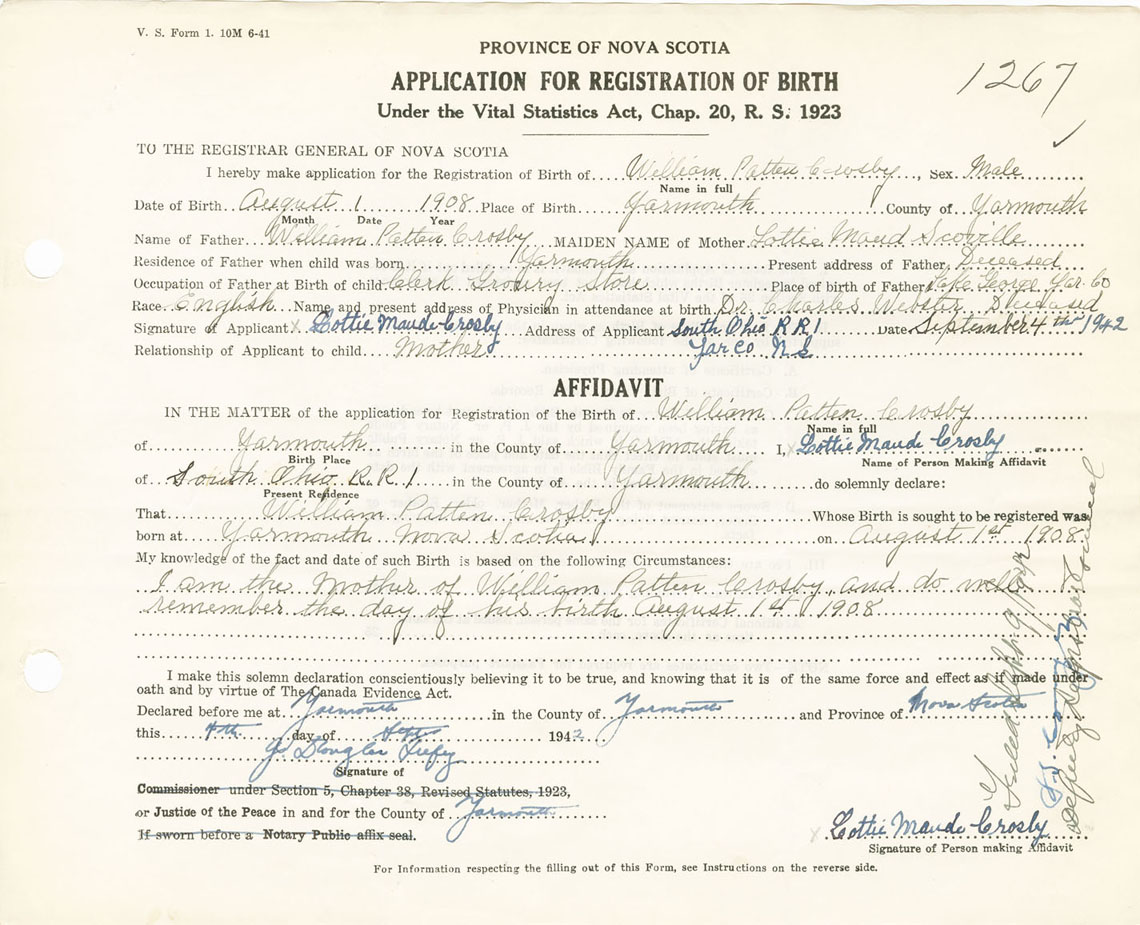 V. S. Form 1. 10M 6-41
PROVINCE OF NOVA SCOTIA
APPLICATION FOR REGISTRATION OF BIRTH
1267
Under the Vital Statistics Act, Chap. 20, R. S. 1923
TO THE REGISTRAR GENERAL OF NOVA SCOTIA
I hereby make application for the Registration of Birth of William Patten Crosby, Sex Male
Name in full
Date of Birth August 1 1908 Place of Birth Yarmouth County of Yarmouth
Month Date Year
Name of Father William Patten Crosby MAIDEN NAME of Mother Lottie Maud Scoville
Residence of Father when child was born Yarmouth Present address of Father Deceased
Occupation of Father at Birth of child Clerk Grocery Store Place of birth of Father Lake George Yar. Co
Race English Name and present address of Physician in attendance at birth Dr. Charles Webster Deceased
Signature of Applicant x Lottie Maude Crosby Address of Applicant South Ohio R R 1 Date September 4th 1942
Relationship of Applicant to child Mother Yar Co N.S
AFFIDAVIT
IN THE MATTER of the application for Registration of the Birth of William Patten Crosby
Name in full
of Yarmouth in the County of Yarmouth I, x Lottie Maude Crosby
Birth Place Name of Person Making Affidavit
of South Ohio R. R 1 in the County of Yarmouth do solemnly declare:
Present Residence
That William Patten Crosby Whose Birth is sought to be registered was
born at Yarmouth Nova Scotia on August 1st 1908
My knowledge of the fact and date of such Birth is based on the following Circumstances:
I am the Mother of William Patten Crosby and do well
remember the day of his birth August 1st 1908
I make this solemn declaration conscientiously believing it to be true, and knowing that it is of the same force and effect as if made under
oath and by virtue of The Canada Evidence Act.
Declared before me at Yarmouth in the County of Yarmouth and Province of Nova Scotia
this 4th day of Sept 1942
J. Douglas
Signature of
Commissioner under Section 5, Chapter 38, Revised Statutes, 1923,
or Justice of the Peace in and for the County of Yarmouth
If sworn before a Notary Public affix seal.
x Lottie Maude Crosby
Signature of Person making Affidavit
For Information respecting the filling out of this Form, see Instructions on the reverse side.
Deputy Registrar General